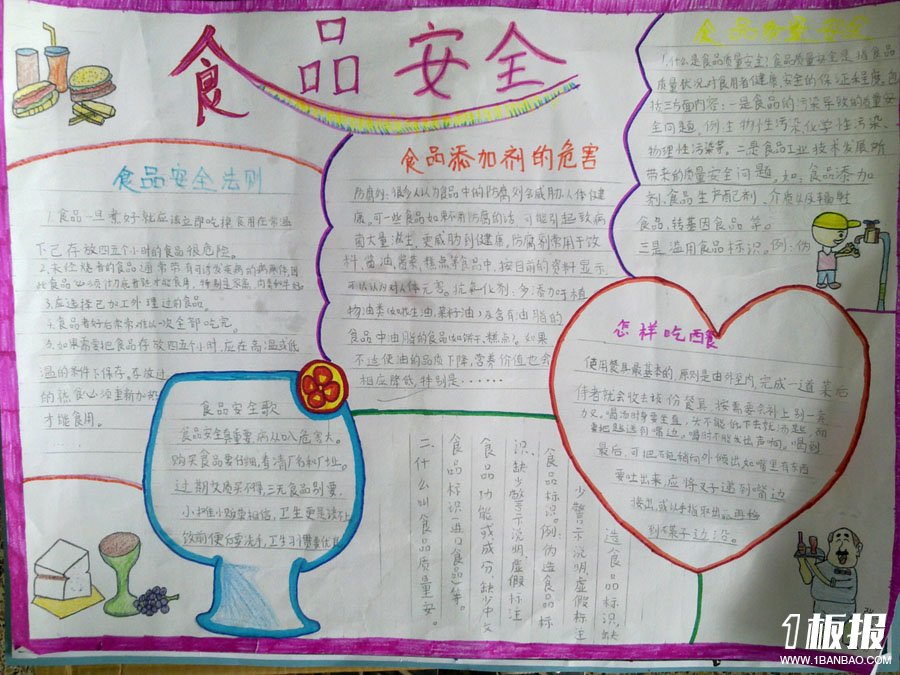 食品安全
食品安全法则
1.食品一旦煮好就应该立即吃掉,食用在常温
下已存放四五个小时的食品很危险。
3.应选择已加工处理过的食品。
4.食品煮好后常常难以一次全部吃完。
5.如果需要把食品存放四五个小时,应在高温或低
温的条件下保存。存放过
的熟食必须重新加热
才能食用。
食品安全歌
食品安全最重要,病从口入危害大。
购买食品要仔细,看清厂名和厂址。
过期变质买不得,三无食品别要。
小摊小贩莫相信,卫生更是谈不上
饭前便后要洗手,卫生习惯要住
食品添加剂的危害
防腐剂:很多人认为食品中的防腐剂会威胁人体健
康。可一些食品如果不用防腐的话,可能引起致病
菌大量滋生,更威胁到健康。防腐剂常用于饮
料、酱油、酱菜、糕点等食品中,按目前的资料显示,
可以认为对人体无害。抗氧化剂:多添加于植
物油类(如花生油、菜籽油)及含有油脂的
食品中油脂的食品(如饼干、糕点)。如果
不适使油的品质下降,营养价值也会
相应降低,特别是......
食品质量安全
1.什么是食品质量安全?食品质量安全是指食品
质量状况对食用者健康、安全的保证程度。包
括三方面内容:一是食品的污染导致的质量安
全问题,例:生物性污染、化学性污染、
物理性污染等。二是食品工业技术发展所
带来的质量安全问题,如:食品添加
剂、食品生产配剂、介质以及辐射
食品、转基因食品等。
三是滥用食品标识。例:伪
造食品标识、缺
少警示说明、虚假标注
食品标识。例:伪造食品标
识、缺少警示说明、虚假标注
食品功能或成分、缺少中文
食品标识(进口食品)等。
二、什么叫食品质量安。
怎样吃西餐
使用餐具最基本的原则是由外至内,完成一道菜后
侍者就会收去该份餐具,按需要会补上另一套
刀叉。喝汤时身要坐直,头不能低下去就汤匙,而
要把匙送到嘴边。喝时不能发出声响。喝到
最后,可把碗稍向外倾出。如嘴里有东西
要吐出来,应将叉子递到嘴边
接出,或以手指取出,再移
到碟子边沿。
1板报
WWW.1BANBAO.COM